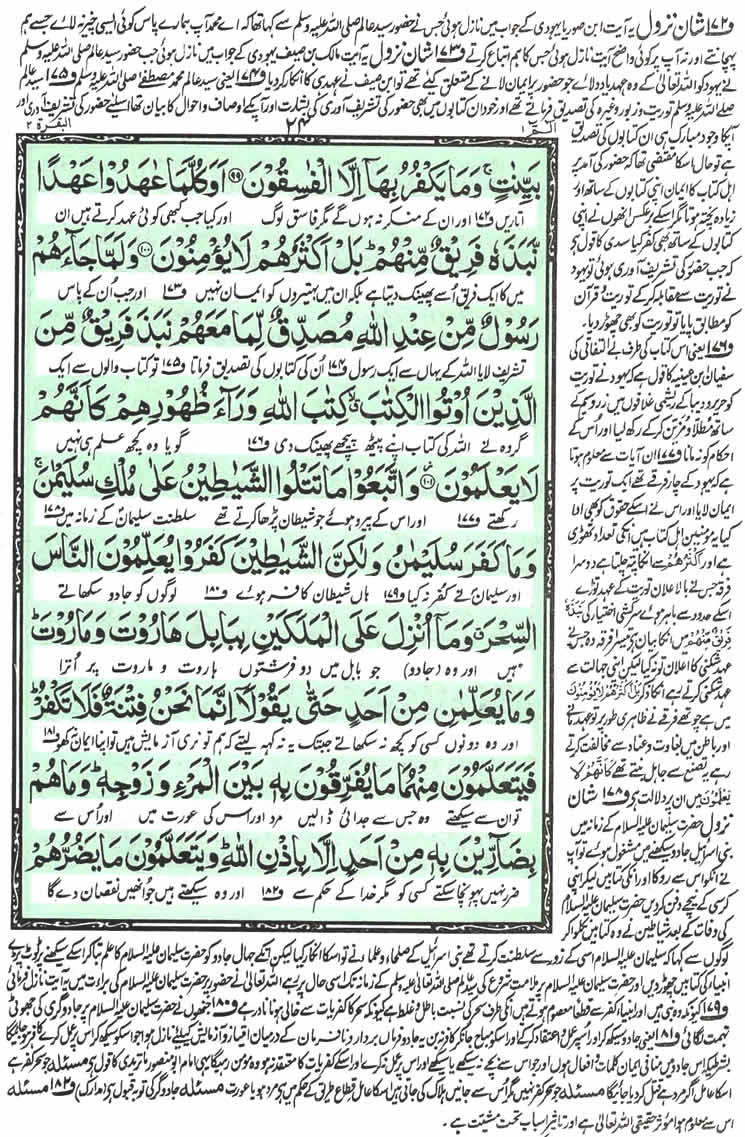 و۱۷۲ شان نزول یہ آیت ابن صوریا یہودی کے جواب میں نازل ہوئی جس نے حضور سید عالم صلی اللہ علیہ وسلم سے کہا تھا کہ اے محمد آپ ہمارے پاس کوئی ایسی چیز نہ لائے جسے ہم
پہچانتے اور نہ آپ پر کوئی واضح آیت نازل ہوئی جس کا ہم اتباع کرتے و۱۷۳ شان نزول یہ آیت مالک بن صیف یہودی کے جواب میں نازل ہوئی جب حضور سید عالم صلی اللہ علیہ وسلم
نے یہود کو اللہ تعالیٰ کے وہ عہد یاد دلائے جو حضور پر ایمان لانے کے متعلق کیے تھے تو ابن صیف نے عہد ہی کا انکار کر دیا و۱۷۴ یعنی سید عالم محمد مصطفےٰ صلی اللہ علیہ وسلم و۱۷۵ سید عالم
صلی اللہ علیہ وسلم توریت و زبور وغیرہ کی تصدیق فرماتے تھے اور خود ان کتابوں میں بھی حضور کی تشریف آوری کی بشارت اور آپکے اوصاف و احوال کا بیان تھا اسلیے حضور کی تشریف آوری اور
الٓمّٓ ۱
۲۴
البقرۃ ۲
بَيِّنٰتٍ ۚ وَمَا يَكْفُرُ بِهَاۤ اِلَّا الْفٰسِقُوْنَ ۹۹ اَوَكُلَّمَا عٰهَدُوْا عَهْدًا
اتاریں و۱۷۲ اور ان کے منکر نہ ہوں گے مگر فاسق لوگ اور کیا جب کبھی کوئی عہد کرتے ہیں ان
نَّبَذَهٗ فَرِيْقٌ مِّنْهُمْ ؕ بَلْ اَكْثَرُهُمْ لَا يُؤْمِنُوْنَ ۱۰۰ وَلَمَّا جَآءَهُمْ
میں کا ایک فریق اُسے پھینک دیتا ہے بلکہ ان میں بہتیروں کو ایمان نہیں و۱۷۳ اور جب اُن کے پاس
رَسُوْلٌ مِّنْ عِنْدِ اللّٰهِ مُصَدِّقٌ لِّمَا مَعَهُمْ نَبَذَ فَرِيْقٌ مِّنَ
تشریف لایا اللہ کے یہاں سے ایک رسول و۱۷۴ اُن کی کتابوں کی تصدیق فرماتا و۱۷۵ تو کتاب والوں سے ایک
الَّذِيْنَ اُوْتُوا الْكِتٰبَ ۙ كِتٰبَ اللّٰهِ وَرَآءَ ظُهُوْرِهِمْ كَاَنَّهُمْ
گروہ نے اللہ کی کتاب اپنے پیٹھ پیچھے پھینک دی و۱۷۶ گویا وہ کچھ علم ہی نہیں
لَا يَعْلَمُوْنَ ۱۰۱ وَاتَّبَعُوْا مَا تَتْلُوا الشَّيٰطِيْنُ عَلٰى مُلْكِ سُلَيْمٰنَ ۚ
رکھتے و۱۷۷ اور اس کے پیرو ہوئے جو شیطان پڑھا کرتے تھے سلطنت سلیمان کے زمانہ میں و۱۷۸
وَمَا كَفَرَ سُلَيْمٰنُ وَلٰكِنَّ الشَّيٰطِيْنَ كَفَرُوْا يُعَلِّمُوْنَ النَّاسَ
اور سلیمان نے کفر نہ کیا و۱۷۹ ہاں شیطان کافر ہوئے و۱۸۰ لوگوں کو جادو سکھاتے
السِّحْرَ ۗ وَمَاۤ اُنْزِلَ عَلَى الْمَلَكَيْنِ بِبَابِلَ هَارُوْتَ وَمَارُوْتَ ؕ
ہیں اور وہ (جادو) جو بابل میں دو فرشتوں ہاروت و ماروت پر اُترا
وَمَا يُعَلِّمٰنِ مِنْ اَحَدٍ حَتّٰى يَقُوْلَاۤ اِنَّمَا نَحْنُ فِتْنَةٌ فَلَا تَكْفُرْ ؕ
اور وہ دونوں کسی کو کچھ نہ سکھاتے جبتک یہ نہ کہہ لیتے کہ ہم تو نری آزمایش ہیں تو اپنا ایمان نہ کھو و۱۸۱
فَيَتَعَلَّمُوْنَ مِنْهُمَا مَا يُفَرِّقُوْنَ بِهٖ بَيْنَ الْمَرْءِ وَزَوْجِهٖ ؕ وَمَا هُمْ
تو ان سے سیکھتے وہ جس سے جدائی ڈالیں مرد اور اس کی عورت میں اور اُس سے
بِضَآرِّيْنَ بِهٖ مِنْ اَحَدٍ اِلَّا بِاِذْنِ اللّٰهِ ؕ وَيَتَعَلَّمُوْنَ مَا يَضُرُّهُمْ
ضرر نہیں پہونچا سکتے کسی کو مگر خدا کے حکم سے و۱۸۲ اور وہ سیکھتے ہیں جو انھیں نقصان دے گا
آپکا وجود مبارک ہی ان کتابوں کی تصدیق
ہے تو حال اسکا مقتضی تھا کہ حضور کی آمد پر
اہل کتاب کا ایمان اپنی کتابوں کے ساتھ اور
زیادہ پختہ ہوتا مگر اسکے برعکس انھوں نے اپنی
کتابوں کے ساتھ بھی کفر کیا سدی کا قول ہے
کہ جب حضور کی تشریف آوری ہوئی تو یہود
نے توریت سے مقابلہ کر کے توریت و قرآن
کو مطابق پایا تو توریت کو بھی چھوڑ دیا۔
و۱۷۶ یعنی اس کتاب کی طرف بے التفاتی کی
سفیان بن عیینہ کا قول ہے کہ یہود نے توریت
کو حریر و دیبا کے ریشمی غلافوں میں زر و سیم کے
ساتھ مطلا و مزین کر کے رکھ لیا اور اس کے
احکام کو نہ مانا و۱۷۷ ان آیات سے معلوم ہوتا
ہے کہ یہود کے چار فرقے تھے ایک توریت پر
ایمان لایا اور اس نے اسکے حقوق کو بھی ادا
کیا یہ مومنین اہل کتاب ہیں انکی تعداد تھوڑی
ہے اور اَكْثَرُهُمْ سے انکا پتہ چلتا ہے دوسرا
فرقہ جس نے بالاعلان توریت کے عہد توڑے
اسکے حدود سے باہر ہوئے سرکشی اختیار کی نَبَذَهٗ
فَرِيْقٌ مِّنْهُمْ میں انکا بیان ہے تیسرا فرقہ وہ جس نے
عہد شکنی کا اعلان تو نہ کیا لیکن اپنی جہالت سے
عہد شکنی کرتے رہے انکا ذکر بَلْ اَكْثَرُهُمْ لَا يُؤْمِنُوْنَ
میں ہے چوتھے فرقے نے ظاہری طور پر تو عہد مانے
اور باطن میں بغاوت و عناد سے مخالفت کرتے
رہے یہ تصنع سے جاہل بنتے تھے كَاَنَّهُمْ لَا
يَعْلَمُوْنَ میں ان پر دلالت ہے و۱۷۸ شان
نزول حضرت سلیمان علیہ السلام کے زمانہ میں
بنی اسرائیل جادو سیکھنے میں مشغول ہوئے تو آپ
نے انکو اس سے روکا اور انکی کتابیں لیکر اپنی
کرسی کے نیچے دفن کردیں حضرت سلیمان علیہ السلام
کی وفات کے بعد شیاطین نے وہ کتابیں نکلوا کر
لوگوں سے کہا کہ سلیمان علیہ السلام اسی کے زور سے سلطنت کرتے تھے بنی اسرائیل کے صلحاء و علماء نے تو اسکا انکار کیا لیکن انکے جہال جادو کو حضرت سلیمان علیہ السلام کا علم بتا کر اسکے سیکھنے پر ٹوٹ پڑے
انبیاء کی کتابیں چھوڑ دیں اور حضرت سلیمان علیہ السلام پر ملامت شروع کی سید عالم صلی اللہ علیہ وسلم کے زمانہ تک اسی حال پر رہے اللہ تعالیٰ نے حضور پر حضرت سلیمان علیہ السلام کی براءت میں یہ آیت نازل فرمائی
و۱۷۹ کیونکہ وہ نبی ہیں اور انبیاء کفر سے قطعاً معصوم ہوتے ہیں انکی طرف سحر کی نسبت باطل و غلط ہے کیونکہ سحر کا کفریات سے خالی ہونا نادر ہے و۱۸۰ جنھوں نے حضرت سلیمان علیہ السلام پر جادوگری کی جھوٹی
تہمت لگائی و۱۸۱ یعنی جادو سیکھ کر اور اسپر عمل و اعتقاد کر کے اور اسکو مباح جانکر کافر نہ بن یہ جادو فرماں بردار و نافرمان کے درمیان امتیاز و آزمایش کیلئے نازل ہوا جو اسکو سیکھ کر اس پر عمل کرے کافر ہو جائیگا
بشرطیکہ اس جادو میں منافی ایمان کلمات و افعال ہوں اور جو اس سے بچے نہ سیکھے یا سیکھے اور اس پر عمل نہ کرے اور اسکے کفریات کا معتقد نہ ہو وہ مومن رہیگا یہی امام ابو منصور ماتریدی کا قول ہے مسئلہ جو سحر کفر ہے
اسکا عامل اگر مرد ہے قتل کر دیا جائیگا مسئلہ جو سحر کفر نہیں مگر اس سے جانیں ہلاک کی جاتی ہیں اسکا عامل قطاع طریق کے حکم میں ہے مرد ہو یا عورت مسئلہ جادوگر کی توبہ قبول ہے (مدارک) و۱۸۲ مسئلہ
اس سے معلوم ہوا مؤثر حقیقی اللہ تعالیٰ ہے اور تاثیر اسباب تحت مشیت ہے۔